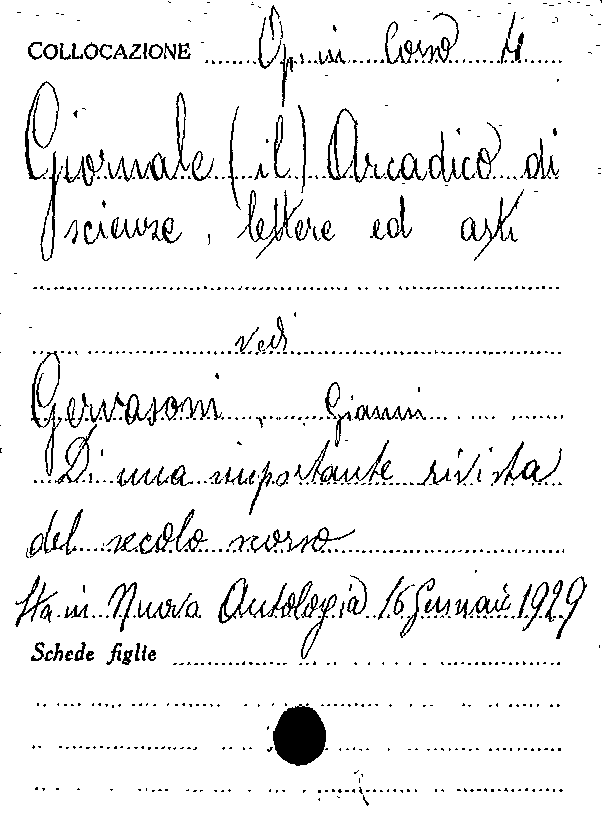 COLLOCAZIONE Op. in Corso 4
Giornale (il) Arcadico di
scienze, lettere ed arti
vedi
Gervasoni, Gianni
Di una importante rivista
del secolo scorso
Sta in Nuova Antologia 16 Gennaio 1929
Schede figlie